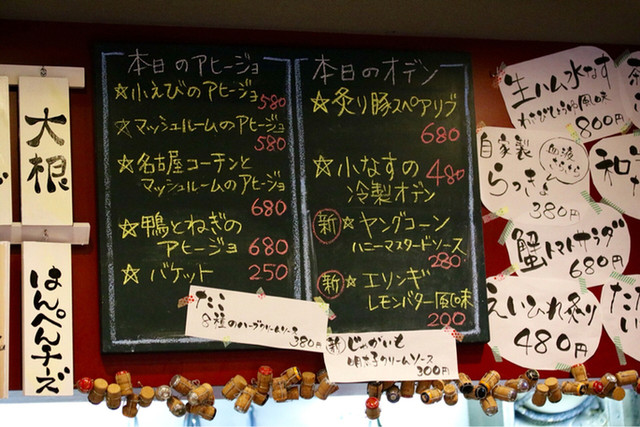 大根
はんぺんチーズ
本日のアヒージョ
☆小えびのアヒージョ 580
☆マッシュルームのアヒージョ 580
☆名古屋コーチンと
マッシュルームのアヒージョ
680
☆鴨とねぎの
アヒージョ 680
☆バケット 250
たこ
8種のハーブクリームソース
380円
本日のオデン
☆炙り豚スペアリブ
680
☆小なすの 480
冷製オデン
新☆ヤングコーン
ハニーマスタードソース
280
新☆エリンギ
レモンバター風味
200
新 じゃがいも
明太子クリームソース
300円
生ハム水なす
800円
自家製
らっきょ
380円
蟹トマトサラダ
680円
えいひれ炙り
480円